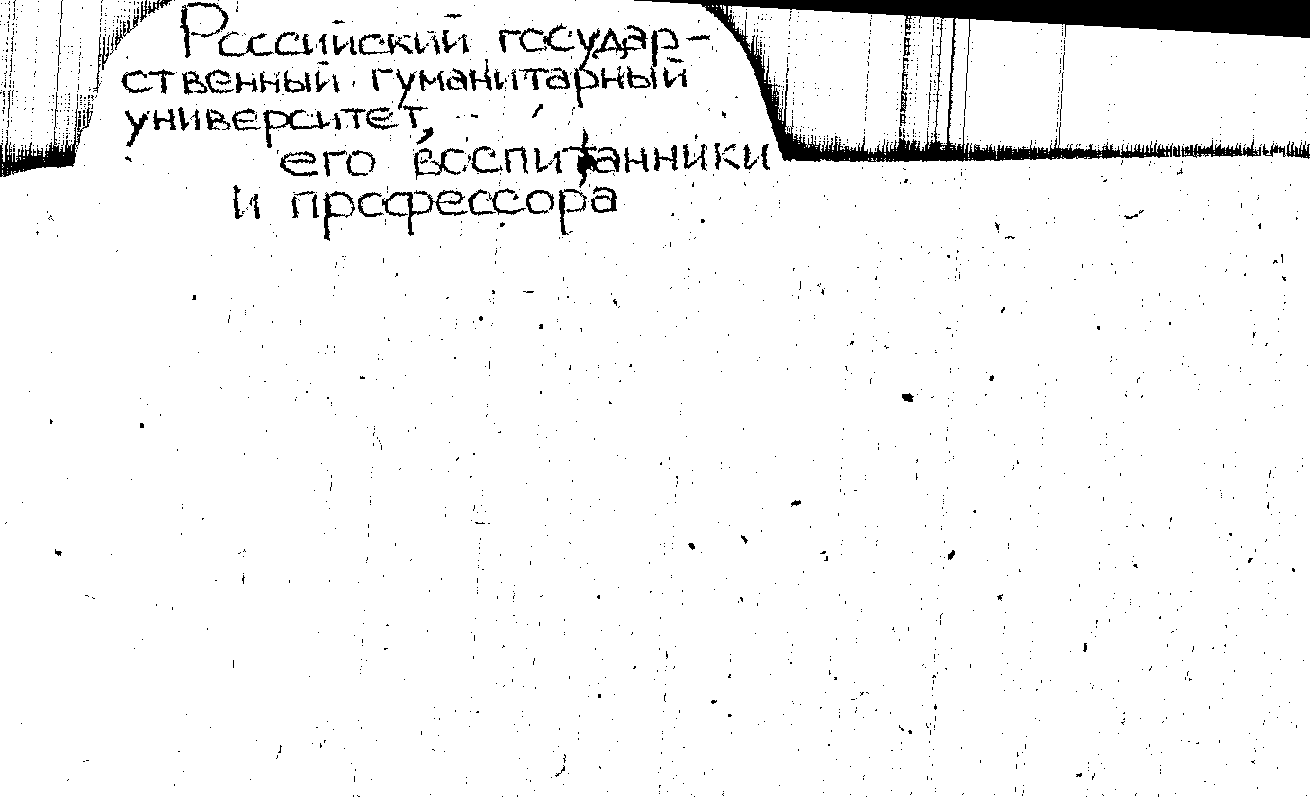 Российский государ-
ственный гуманитарный
университет,
его воспитанники
и профессора